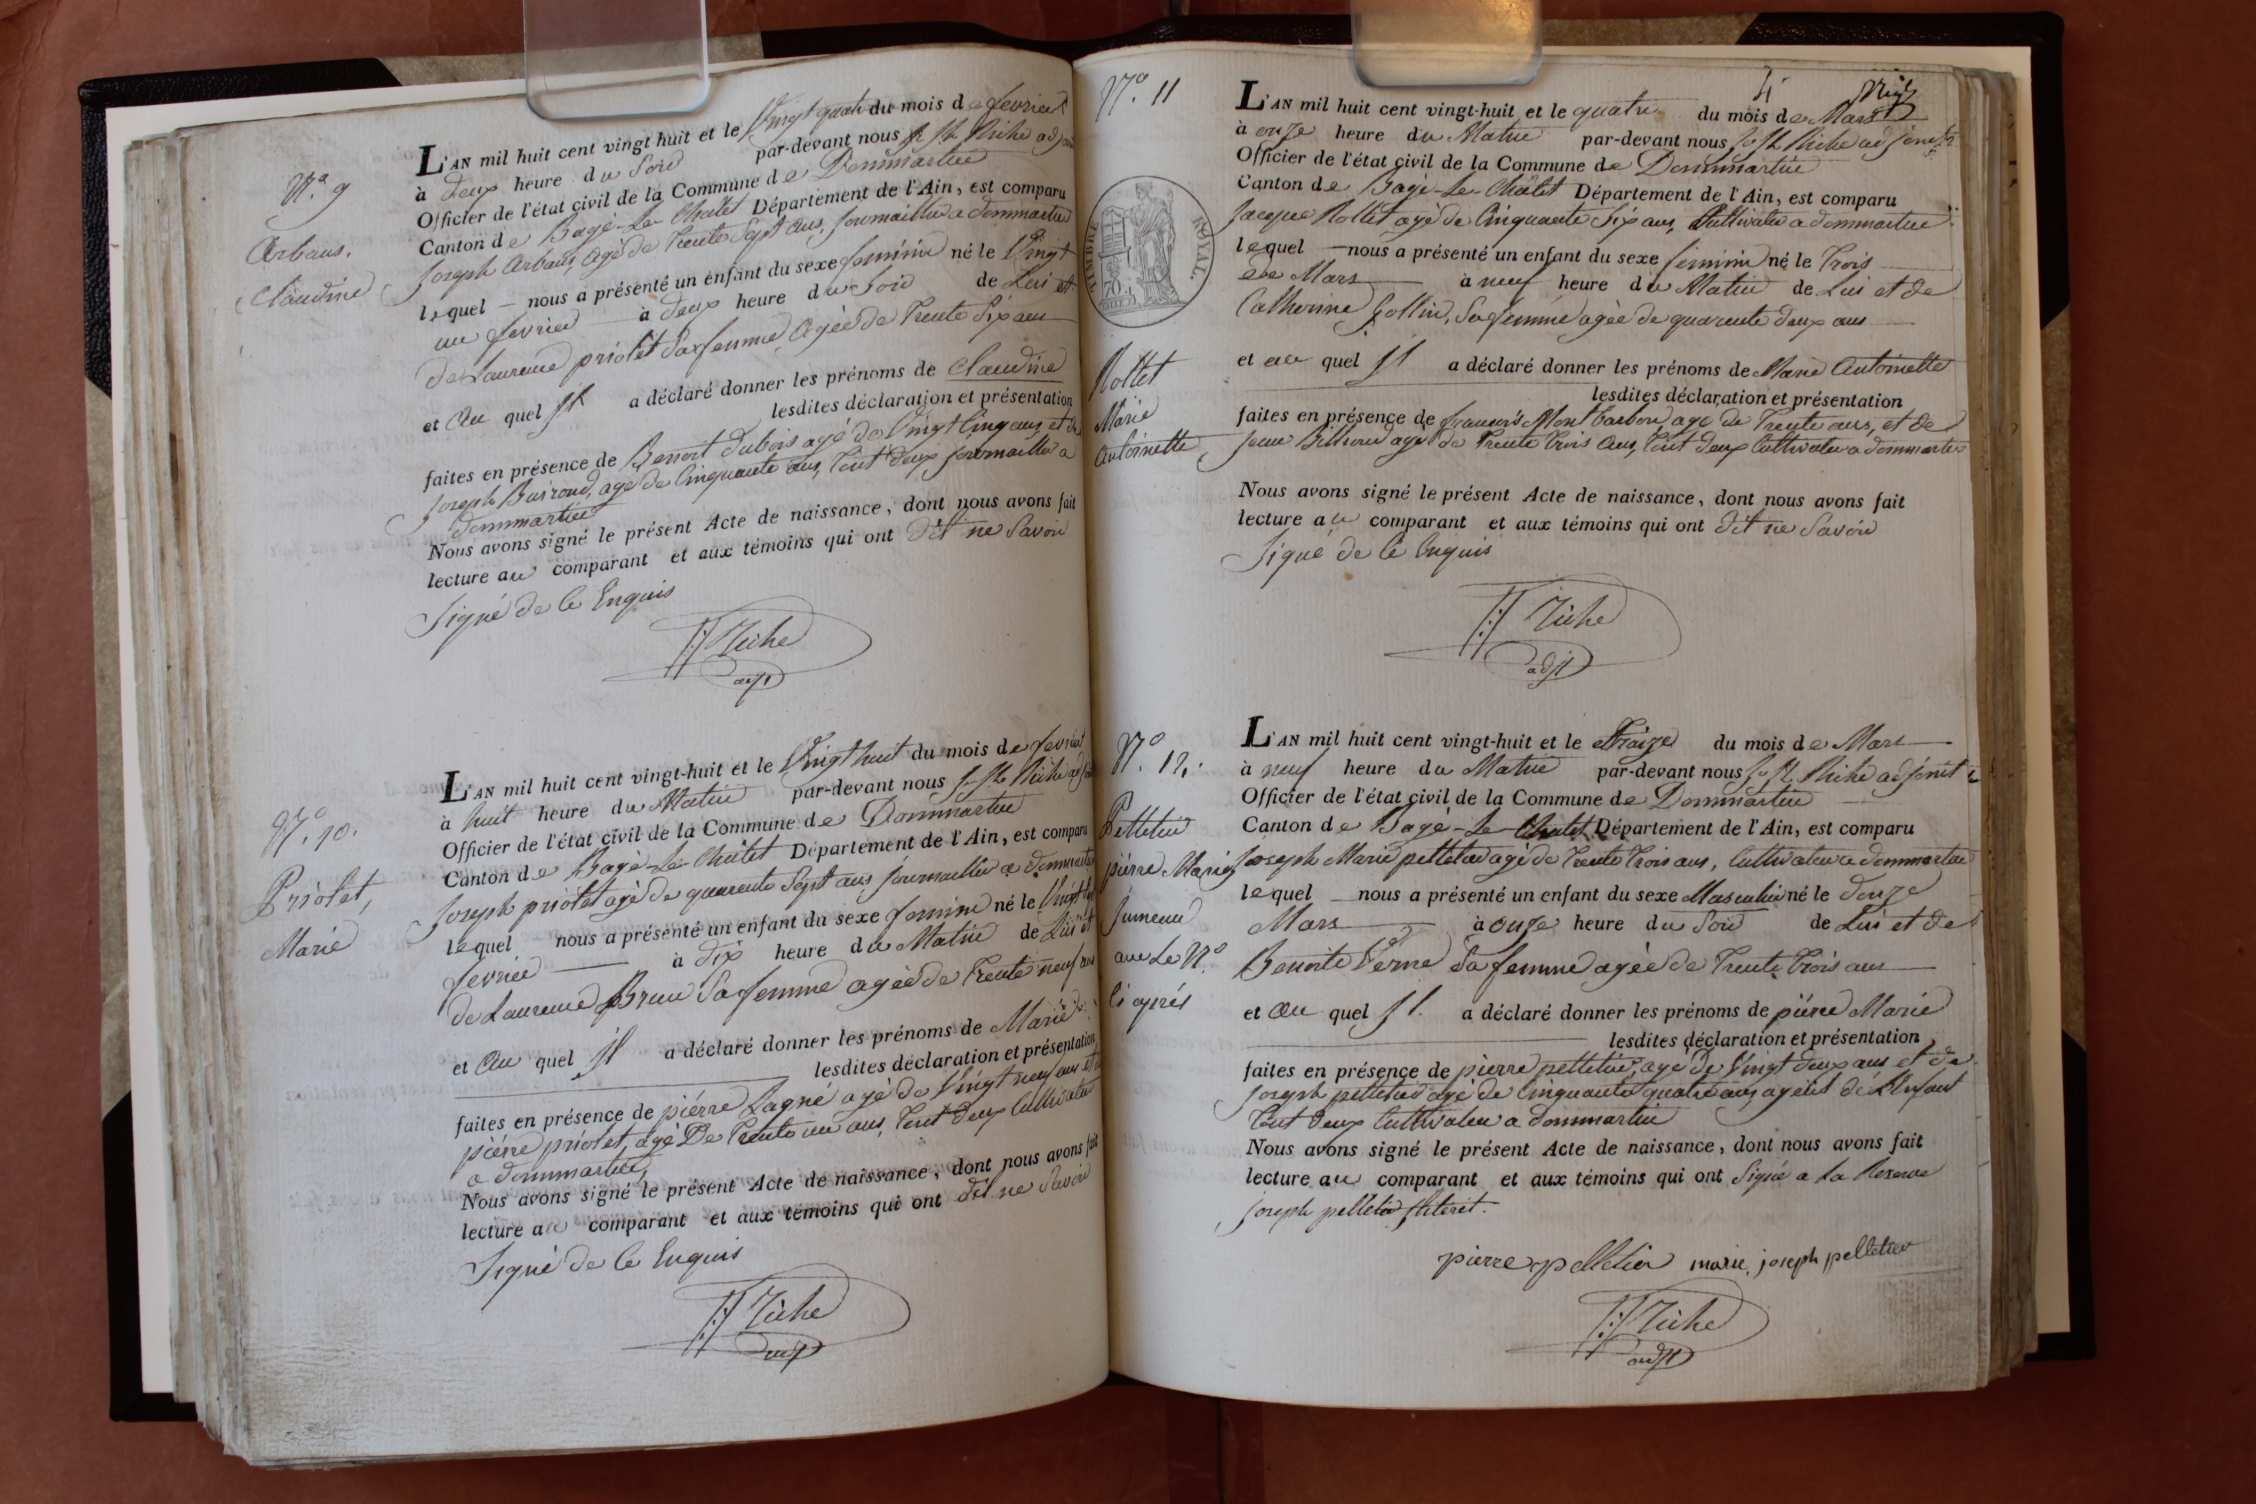 N.o 9
Arbaus.
Claudine
L'AN mil huit cent vingt huit et le Vingt quatre du mois de fevrier
à deux heure du Soir par-devant nous Niche adj
Officier de l'état civil de la Commune de Dommartin
Canton de Bagé-Le-Chatel Département de l'Ain, est comparu
Joseph Arbaus, agé de Trente Sept ans, Journaillier a dommartin
lequel — nous a présenté un enfant du sexe feminin né le Vingt
un fevrier à deux heure du Soir de Lui et
de Laurence priolet Sa femme Agée de Trente Six ans
et Au quel Il a déclaré donner les prénoms de Claudine
lesdites déclaration et présentation
faites en présence de Benoit Dubois agé de Vingt Cinq ans, et de
Joseph Buiroud, agé de Cinquante ans, Tout deux Journaillier a
dommartin
Nous avons signé le présent Acte de naissance, dont nous avons fait
lecture au comparant et aux témoins qui ont dit ne Savoir
Signé de Ce Enquis
Niche
adjt
N.o 10.
Priolet,
Marie
L'AN mil huit cent vingt-huit et le Vingt huit du mois de fevrier
à huit heure du Matin par-devant nous Niche adj
Officier de l'état civil de la Commune de Dommartin
Canton de Bagé-Le-Chatel Département de l'Ain, est comparu
Joseph priolet agé de quarente Sept ans Journaillier a dommartin
lequel nous a présenté un enfant du sexe feminin né le Vingt
fevrier — à dix heure du Matin de Lui et
de Laurence Brun Sa femme agée de Trente neuf ans
et Au quel Il a déclaré donner les prénoms de Marie
lesdites déclaration et présentation
faites en présence de piérre Lagné agé de Vingt neuf ans et
piérre priolet, agé De Trente un ans, Tout deux Cultivateur
a dommartin,
Nous avons signé le présent Acte de naissance, dont nous avons fait
lecture au comparant et aux témoins qui ont dit ne Savoir
Signé de Ce Enquis
Niche
adjt
4
N.o 11
TIMBRE ROYAL.
Rollet
Marie
Antoinette
L'AN mil huit cent vingt-huit et le quatre du mois de Mars
à onze heure du Matin par-devant nous Niche adjoint
Officier de l'état civil de la Commune de Dommartin
Canton de Bagé-Le-Châtel Département de l'Ain, est comparu
Jacque Rollet agé de Cinquante Six ans, Cultivateur a dommartin
lequel — nous a présenté un enfant du sexe feminin né le Trois
de Mars à neuf heure du Matin de Lui et de
Catherine Gollin, Sa femme agée de quarente deux ans
et au quel Il a déclaré donner les prénoms de Marie Antoinette
lesdites déclaration et présentation
faites en présence de francois Mont barbon, agé de Trente ans, et de
Jean Billioud agé de Trente Trois ans, Tout deux Cultivateur a dommartin
Nous avons signé le présent Acte de naissance, dont nous avons fait
lecture au comparant et aux témoins qui ont dit ne Savoir
Signé de Ce Enquis
Niche
adjt
N.o 12.
Pelletier
pierre Marie
Jumeau
avec Le N.o
Ci aprés
L'AN mil huit cent vingt-huit et le Traize du mois de Mars
à neuf heure du Matin par-devant nous Niche adjoint
Officier de l'état civil de la Commune de Dommartin
Canton de Bagé-Le-Chatel Département de l'Ain, est comparu
Joseph Marie pelletier agé de Trente Trois ans, Cultivateur a dommartin
lequel nous a présenté un enfant du sexe Masculin né le douze
Mars à onze heure du Soir de Lui et de
Benoite Verne Sa femme agée de Trente Trois ans
et Au quel Il. a déclaré donner les prénoms de piérre Marie
lesdites déclaration et présentation
faites en présence de pierre pelletier, agé De Vingt deux ans et de
Joseph pelletier agé de Cinquante quatre ans de L'Enfant
Tout deux Cultivateur a dommartin
Nous avons signé le présent Acte de naissance, dont nous avons fait
lecture au comparant et aux témoins qui ont Signé a La Reserve
Joseph pelletier Illiteret.
pierre pelletier marie, joseph pelletier
Niche
adjt